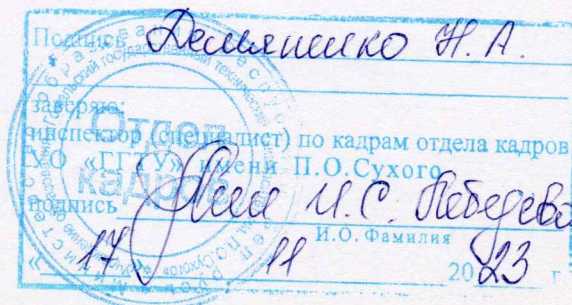 Подпись Демьяненко Н. А.
заверяю:
инспектор (специалист) по кадрам отдела кадров
УО «ГГТУ» имени П.О.Сухого
Отдел
кадров
подпись И.С. Лебедева
И.О. Фамилия
« 17 » 11 2023 г